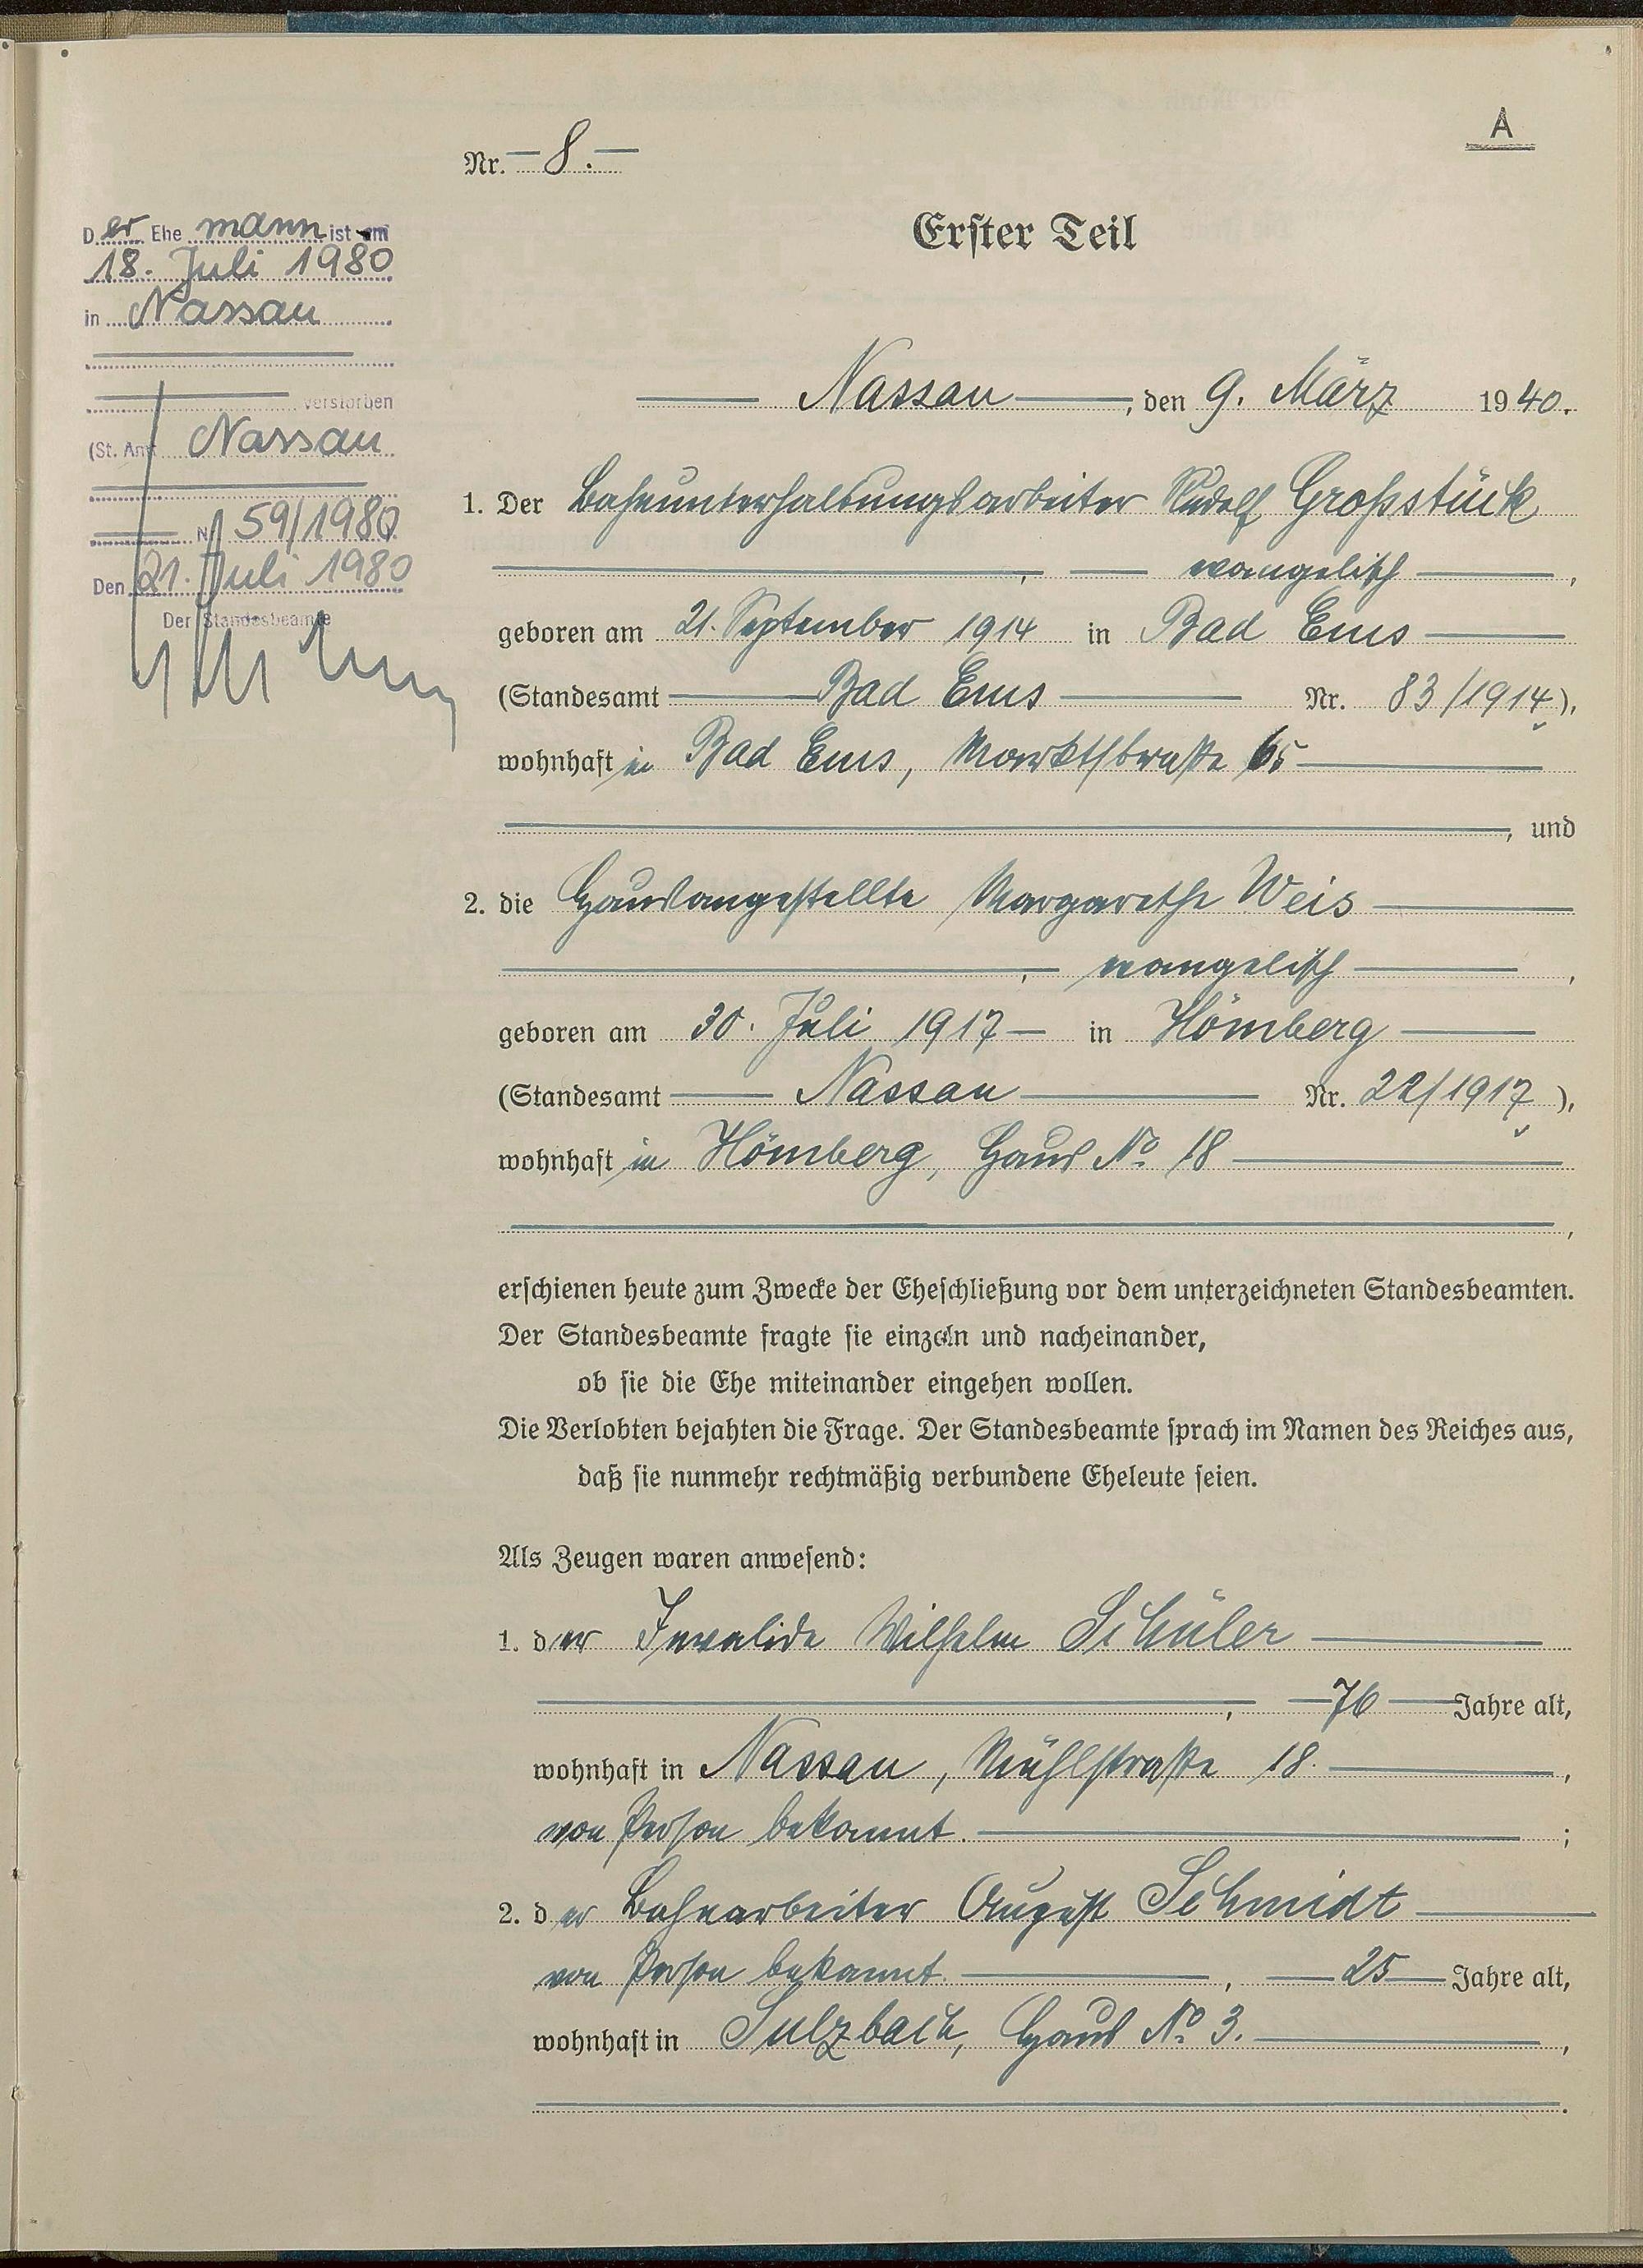 A
Nr. 8.
Erster Teil
Der Ehemann ist am
18. Juli 1980
in Nassau
verstorben
(St. Amt Nassau
Nr. 59/1980
Den 21. Juli 1980
Der Standesbeamte
Nassau, den 9. März 1940.
1. Der Bahnunterhaltungsarbeiter Rudolf Großstück
, evangelisch,
geboren am 21. September 1914 in Bad Ems
(Standesamt Bad Ems Nr. 83/1914),
wohnhaft in Bad Ems, Marktstraße 65
, und
2. die Hausangestellte Margarethe Weis
, evangelisch,
geboren am 30. Juli 1917 in Hömberg
(Standesamt Nassau Nr. 22/1917),
wohnhaft in Hömberg, Haus No. 18
,
erschienen heute zum Zwecke der Eheschließung vor dem unterzeichneten Standesbeamten.
Der Standesbeamte fragte sie einzeln und nacheinander,
ob sie die Ehe miteinander eingehen wollen.
Die Verlobten bejahten die Frage. Der Standesbeamte sprach im Namen des Reiches aus,
daß sie nunmehr rechtmäßig verbundene Eheleute seien.
Als Zeugen waren anwesend:
1. der Invalide Wilhelm Schüler
, 76 Jahre alt,
wohnhaft in Nassau, Mühlstraße 18.,
von Person bekannt.;
2. der Bahnarbeiter August Schmidt
von Person bekannt., 25 Jahre alt,
wohnhaft in Sulzbach, Haus No. 3.,
.